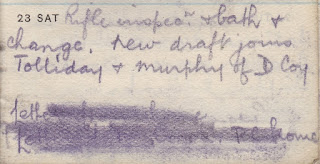 23 SAT Rifle inspecn & bath &
change. New draft joins
Tolliday & Murphy of D Coy.
home